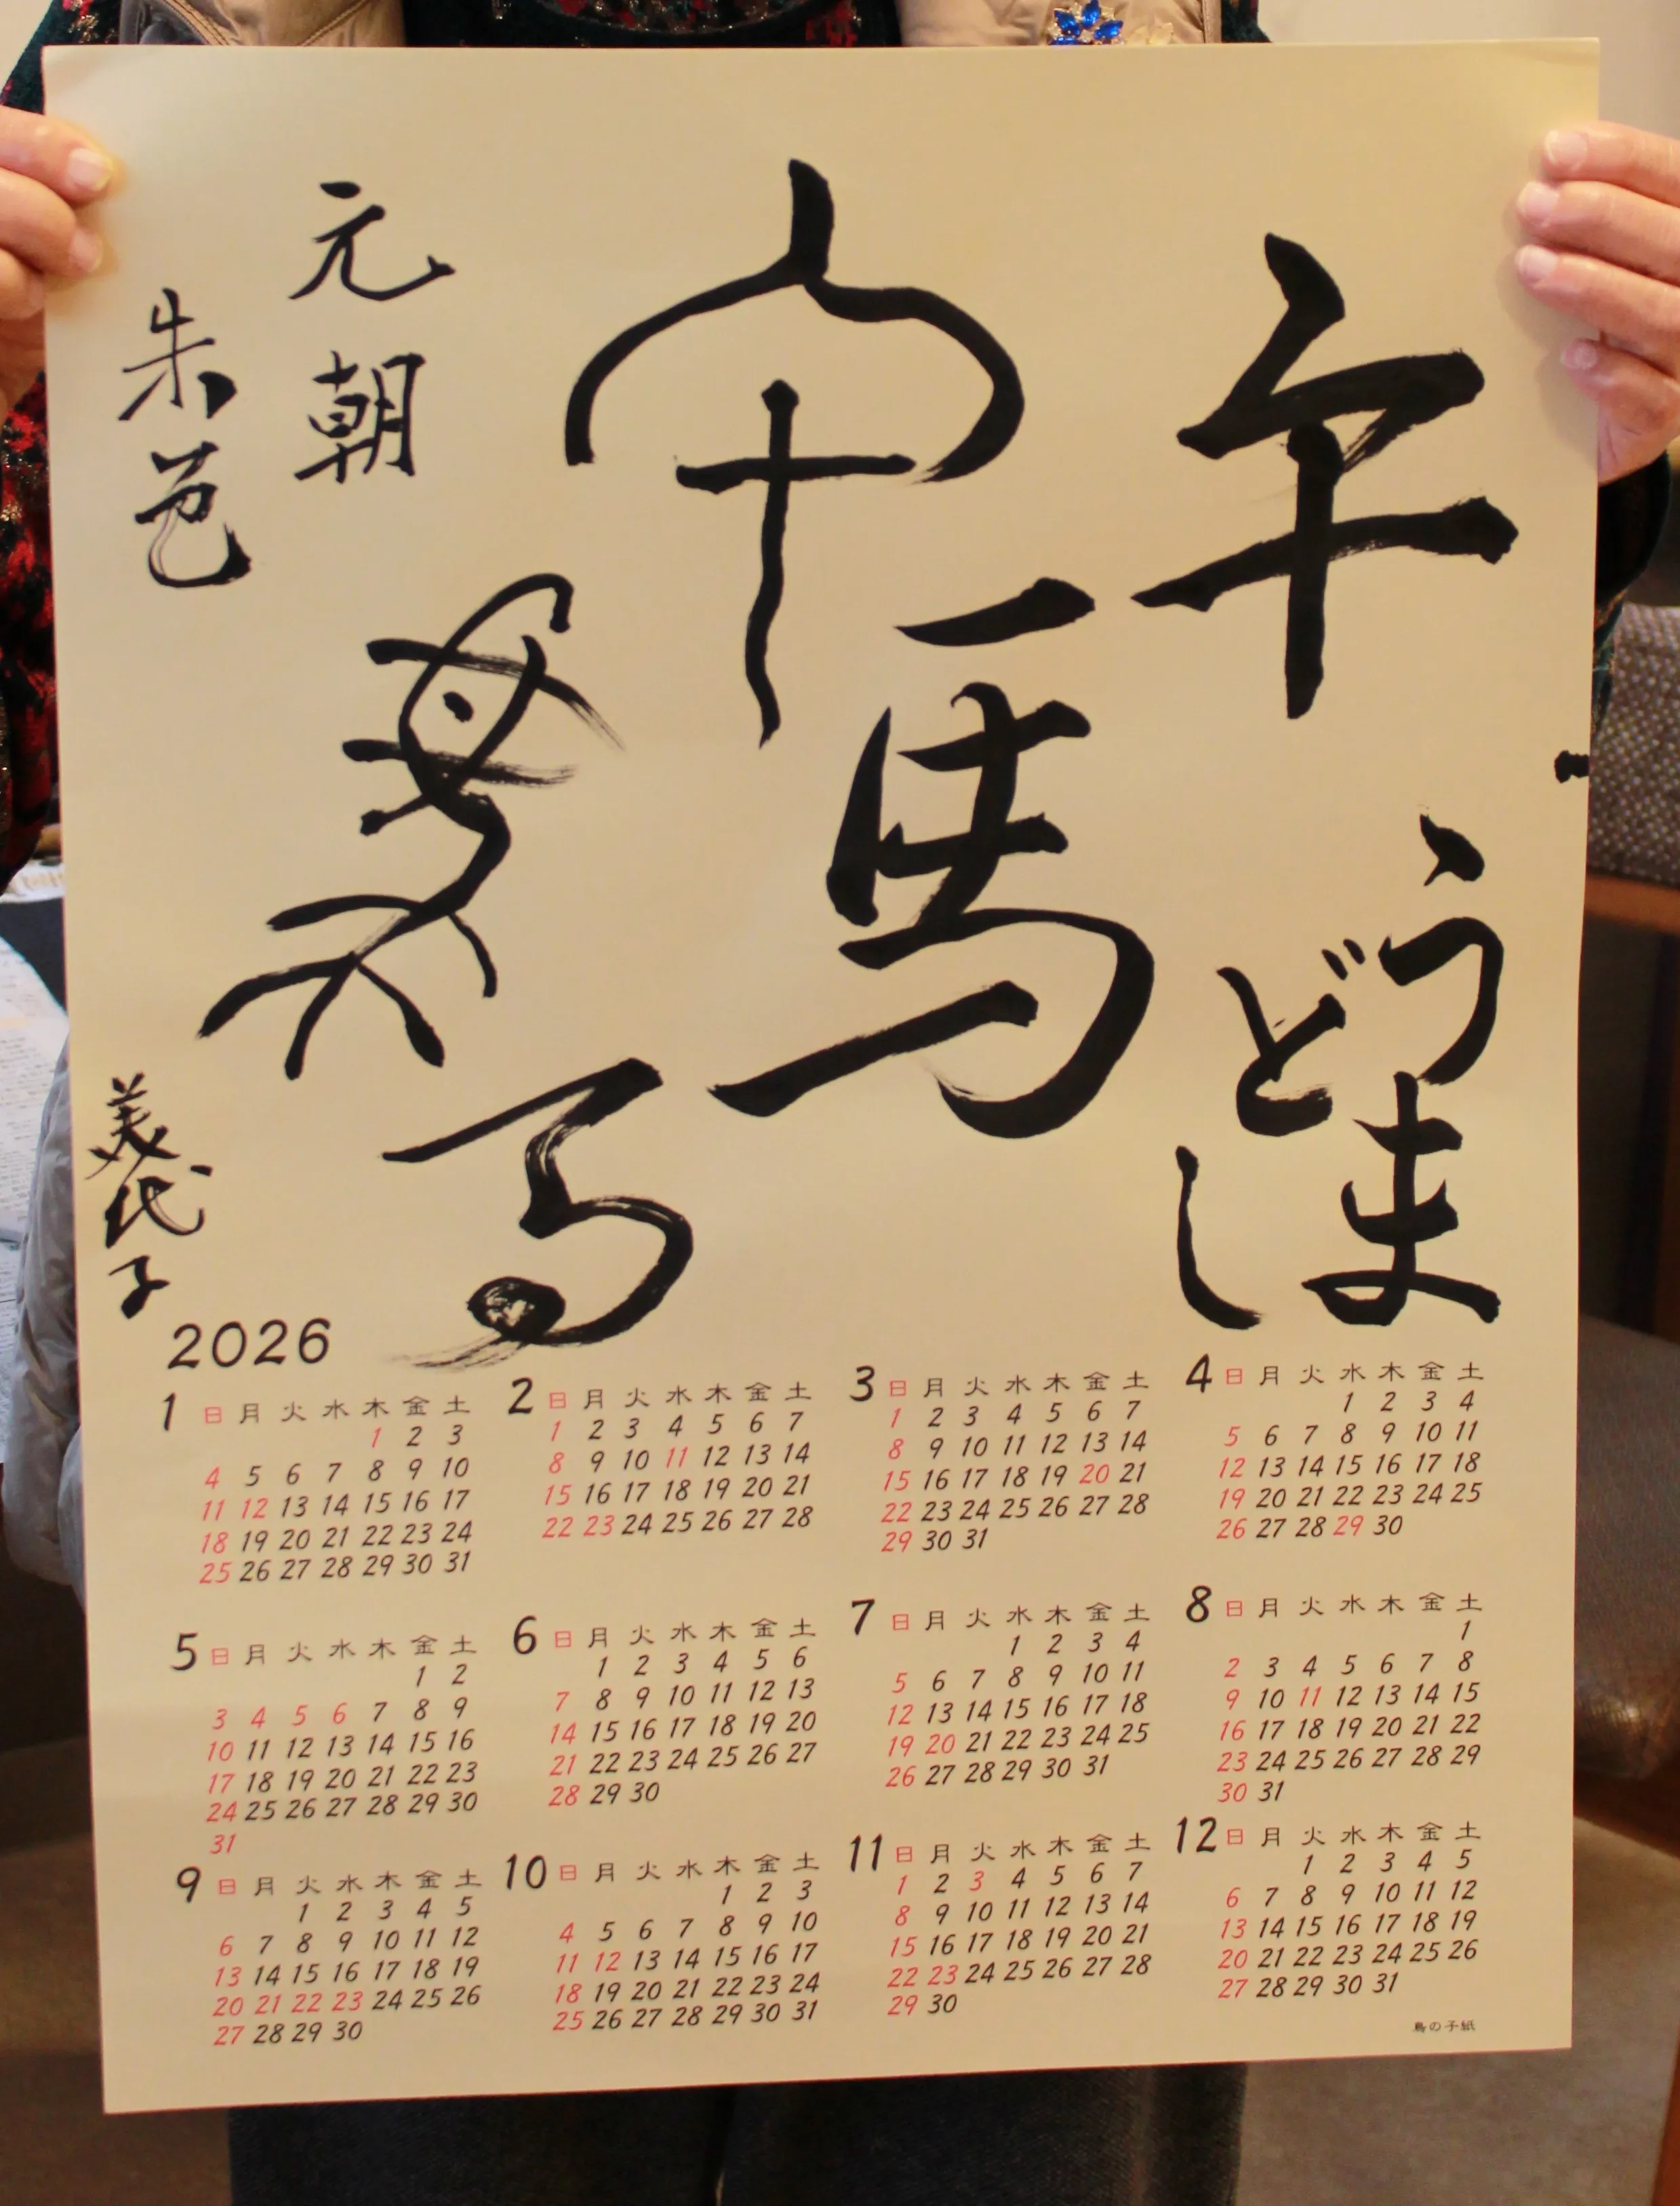 午
うま
どし
午
馬
馬
馬
元朝
朱邑
美代子
2026
1 日 月 火 水 木 金 土
1 2 3
4 5 6 7 8 9 10
11 12 13 14 15 16 17
18 19 20 21 22 23 24
25 26 27 28 29 30 31
2 日 月 火 水 木 金 土
1 2 3 4 5 6 7
8 9 10 11 12 13 14
15 16 17 18 19 20 21
22 23 24 25 26 27 28
3 日 月 火 水 木 金 土
1 2 3 4 5 6 7
8 9 10 11 12 13 14
15 16 17 18 19 20 21
22 23 24 25 26 27 28
29 30 31
4 日 月 火 水 木 金 土
1 2 3 4
5 6 7 8 9 10 11
12 13 14 15 16 17 18
19 20 21 22 23 24 25
26 27 28 29 30
5 日 月 火 水 木 金 土
1 2
3 4 5 6 7 8 9
10 11 12 13 14 15 16
17 18 19 20 21 22 23
24 25 26 27 28 29 30
31
6 日 月 火 水 木 金 土
1 2 3 4 5 6
7 8 9 10 11 12 13
14 15 16 17 18 19 20
21 22 23 24 25 26 27
28 29 30
7 日 月 火 水 木 金 土
1 2 3 4
5 6 7 8 9 10 11
12 13 14 15 16 17 18
19 20 21 22 23 24 25
26 27 28 29 30 31
8 日 月 火 水 木 金 土
1
2 3 4 5 6 7 8
9 10 11 12 13 14 15
16 17 18 19 20 21 22
23 24 25 26 27 28 29
30 31
9 日 月 火 水 木 金 土
1 2 3 4 5
6 7 8 9 10 11 12
13 14 15 16 17 18 19
20 21 22 23 24 25 26
27 28 29 30
10 日 月 火 水 木 金 土
1 2 3
4 5 6 7 8 9 10
11 12 13 14 15 16 17
18 19 20 21 22 23 24
25 26 27 28 29 30 31
11 日 月 火 水 木 金 土
1 2 3 4 5 6 7
8 9 10 11 12 13 14
15 16 17 18 19 20 21
22 23 24 25 26 27 28
29 30
12 日 月 火 水 木 金 土
1 2 3 4 5
6 7 8 9 10 11 12
13 14 15 16 17 18 19
20 21 22 23 24 25 26
27 28 29 30 31
鳥の子紙